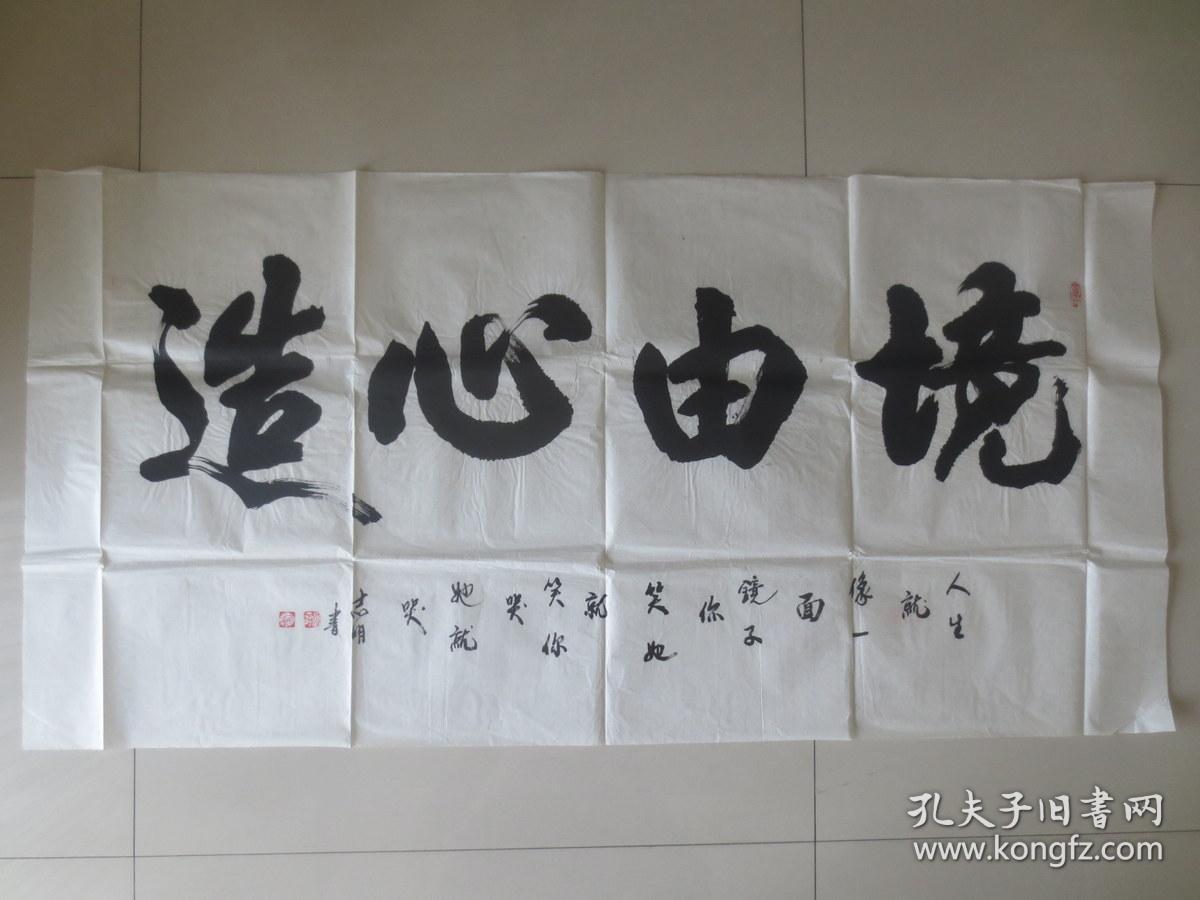 境由心造
人生就像一面鏡子你笑她就笑你哭她就哭
志明書
孔夫子旧書网
www.kongfz.com